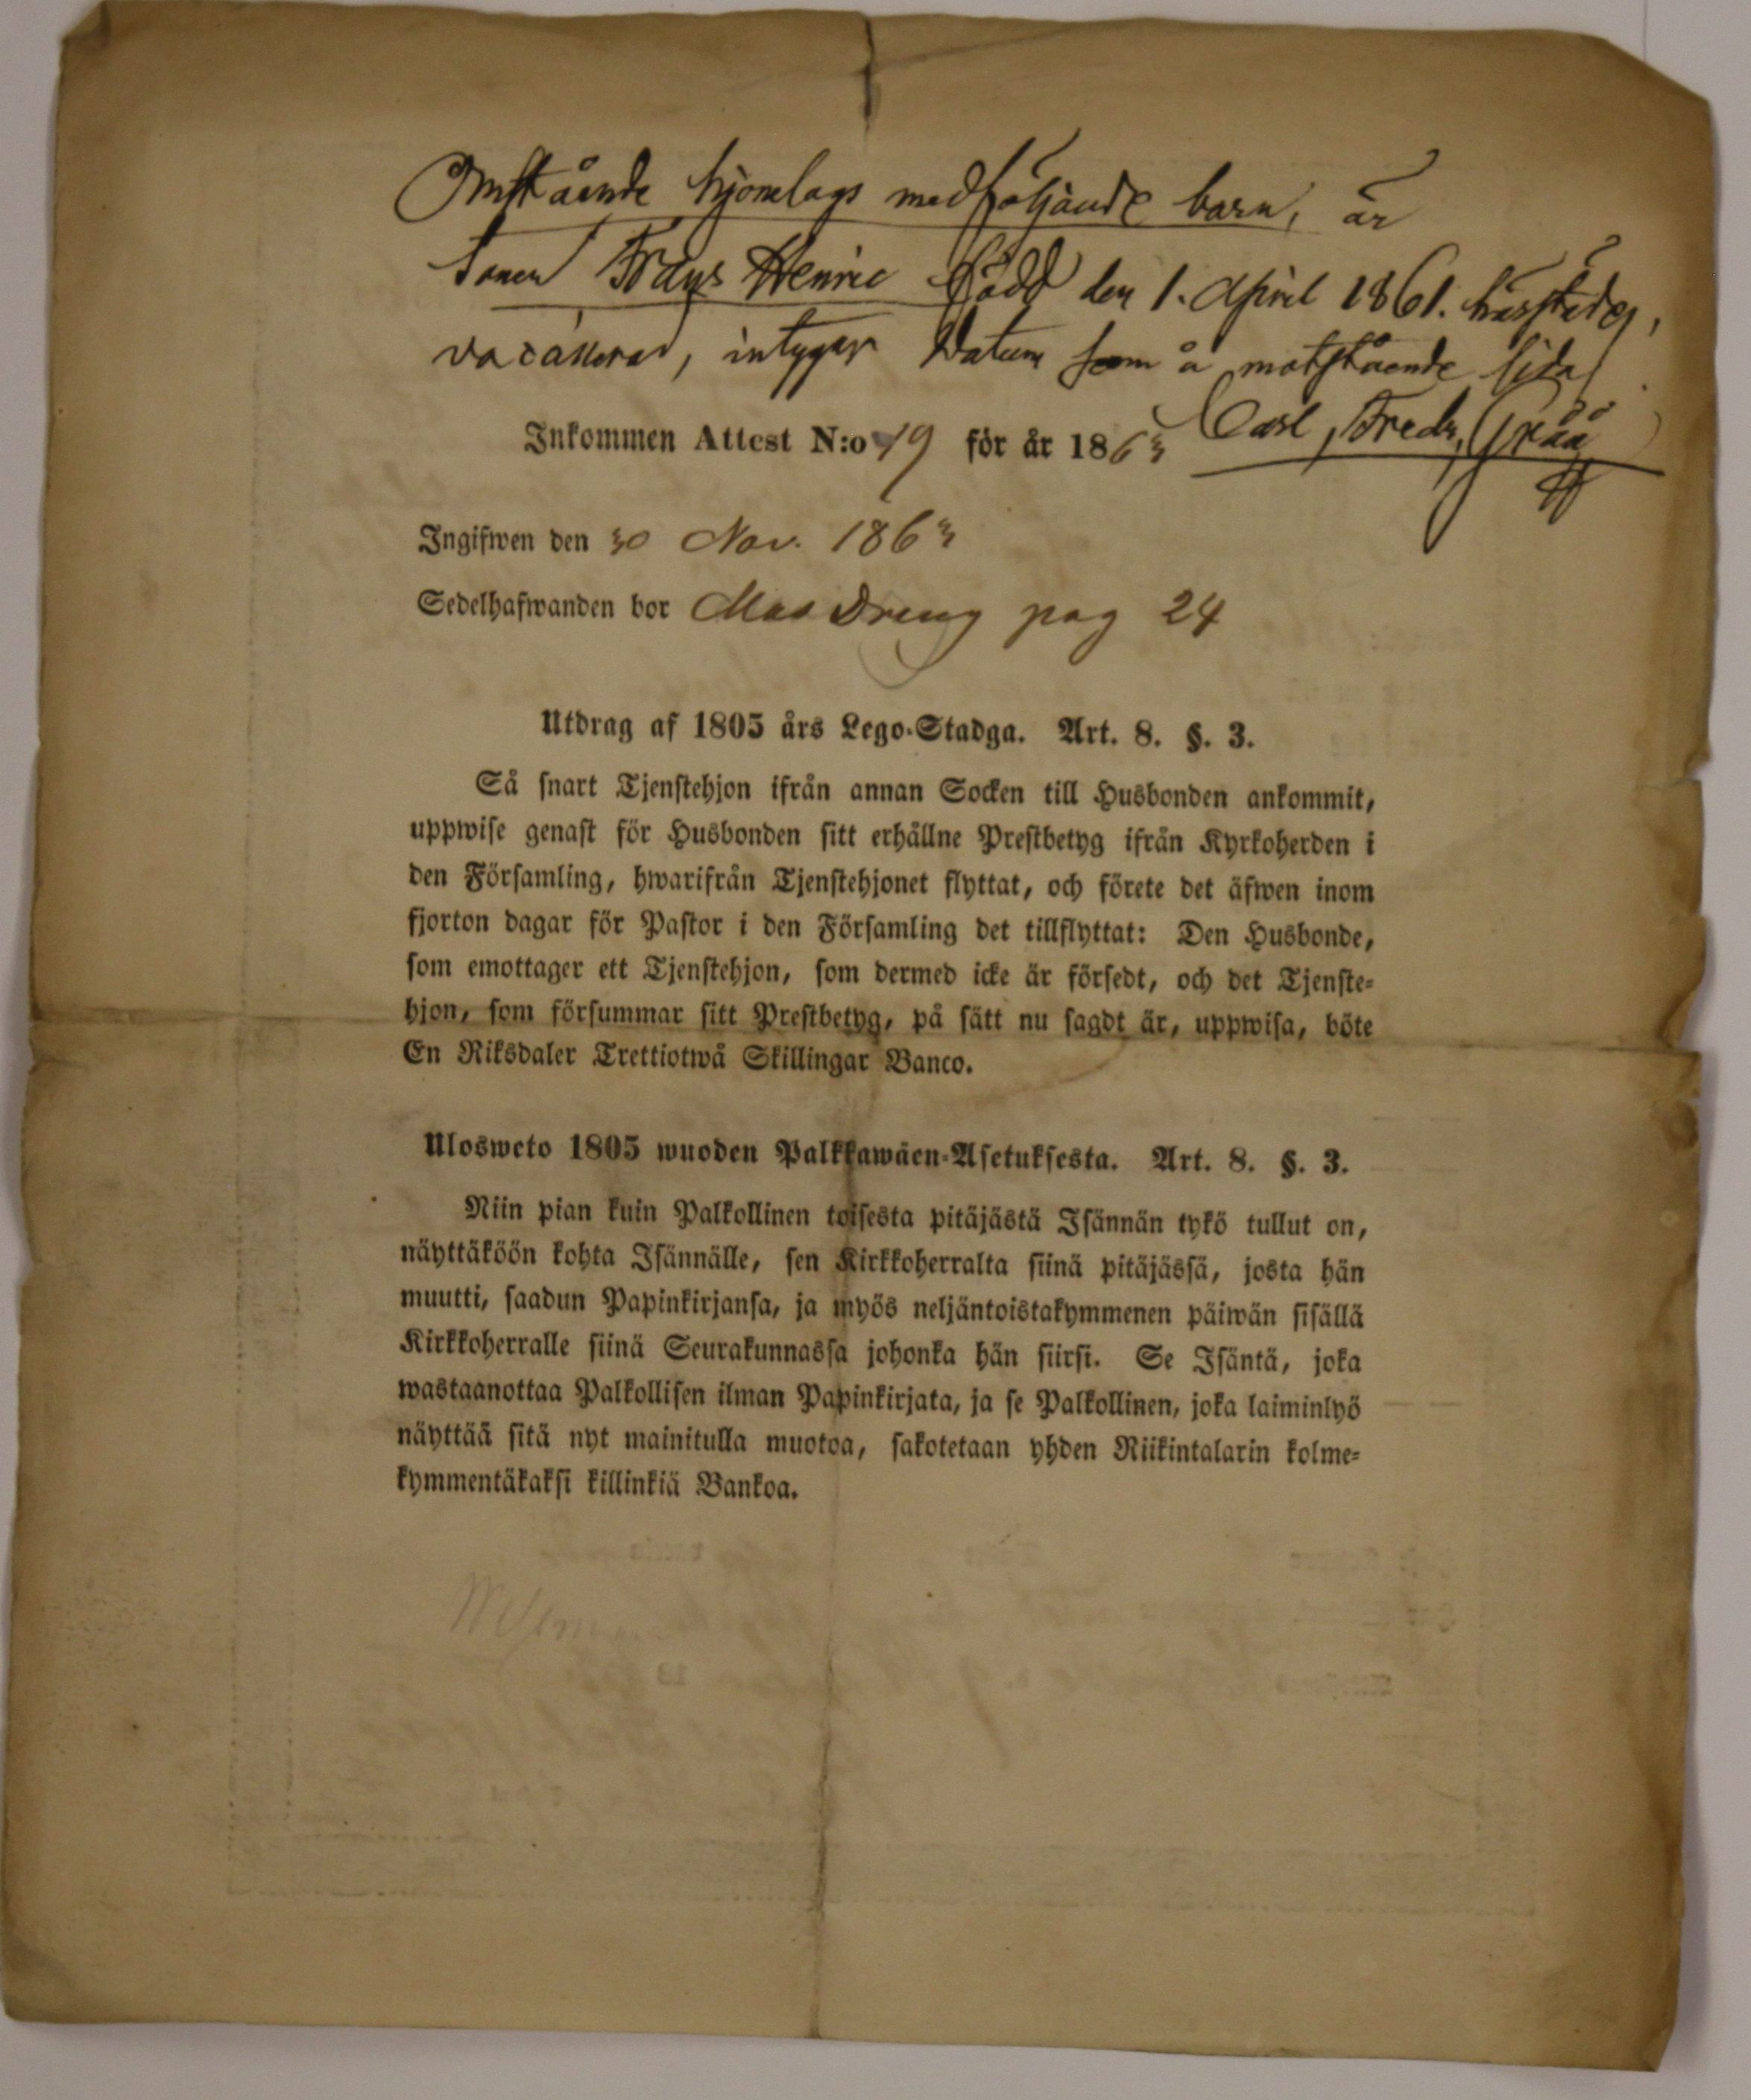 Omstående hjonelags medföljande barn, är
sonen Frans Henric född den 1. April 1861. härstädes,
vaccinerad, intygar Datum som å motstående sida
Carl Fredr. Gråå
Inkommen Attest N:o 19 för år 1863
Ingifwen den 30 Nov. 1863
Sedelhafwanden bor Mas Dreng pag 24
Utdrag af 1805 års Lego-Stadga. Art. 8. §. 3.
Så snart Tjenstehjon ifrån annan Socken till Husbonden ankommit,
uppwise genast för Husbonden sitt erhållne Prestbetyg ifrån Kyrkoherden i
den Församling, hwarifrån Tjenstehjonet flyttat, och förete det äfwen inom
fjorton dagar för Pastor i den Församling det tillflyttat: Den Husbonde,
som emottager ett Tjenstehjon, som dermed icke är försedt, och det Tjenste-
hjon, som försummar sitt Prestbetyg, på sätt nu sagdt är, uppwisa, böte
En Riksdaler Trettiotwå Skillingar Banco.
Ulosweto 1805 wuoden Palkkawäen-Asetuksesta. Art. 8. §. 3.
Niin pian kuin Palkollinen toisesta pitäjästä Isännän tykö tullut on,
näyttäköön kohta Isännälle, sen Kirkkoherralta siinä pitäjässä, josta hän
muutti, saadun Papinkirjansa, ja myös neljäntoistakymmenen päiwän sisällä
Kirkkoherralle siinä Seurakunnassa johonka hän siirsi. Se Isäntä, joka
wastaanottaa Palkollisen ilman Papinkirjata, ja se Palkollinen, joka laiminlyö
näyttää sitä nyt mainitulla muotoa, sakotetaan yhden Riikintalarin kolme-
kymmentäkaksi killinkiä Bankoa.